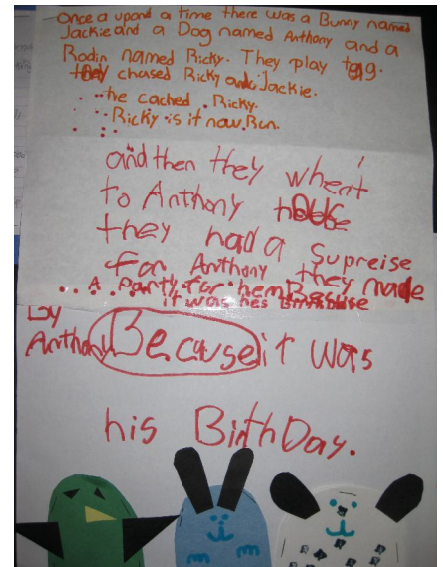 Once a upond a time there was a Bunny named
Jackie and a Dog named Anthony and a
Rodin named Ricky. They play tag.
chased Ricky and Jackie.
he cached Ricky.
Ricky is it now Run.
and then they whent
to Anthony
they had a Supreise
for Anthony they made
A party for hem Becuse
it was hes
By
Anthony Because it was
his BirthDay.